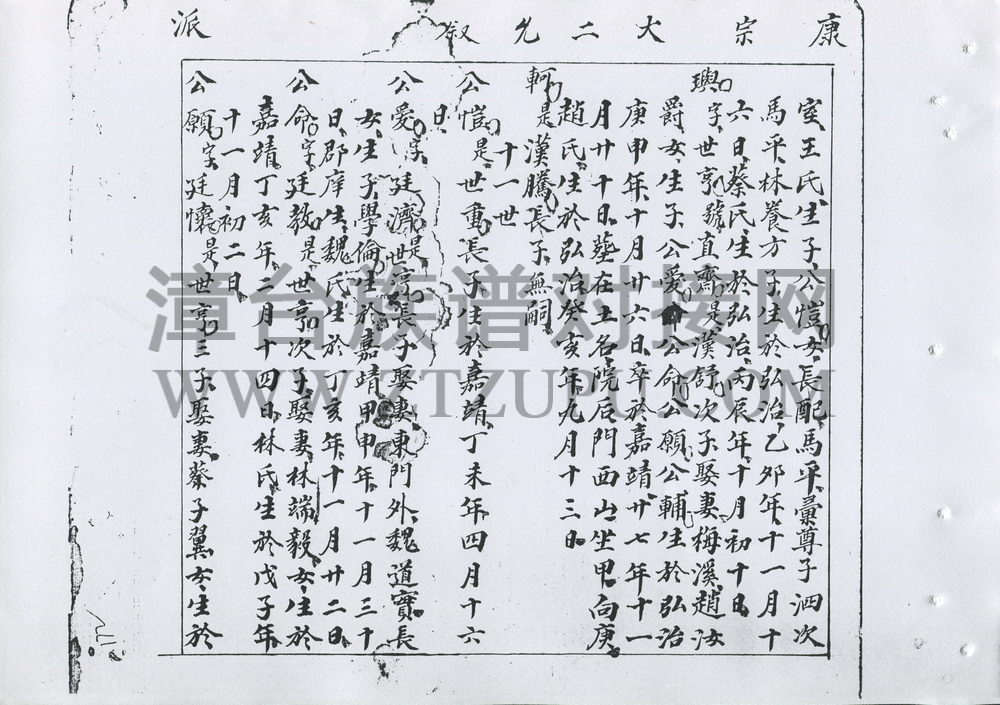 康宗大二允叙派
室王氏生子公愷女長配馬平彙尊子泗次
馬平林養方子生於弘治乙卯年十一月十
六日蔡氏生於弘治丙辰年十月初十日
璵字世亨號直齋是漢舒次子娶妻梅溪趙汝
爵女生子公愛公命公願公輔生於弘治
庚申年十月廿六日卒於嘉靖廿七年十一
月廿十日塟在土名院后門西山坐甲向庚
趙氏生於弘治癸亥年九月十三日
軻是漢騰長子無嗣
十一世
公愷是世重長子生於嘉靖丁未年四月十六
日
公愛字廷濟是世淳長子娶妻東門外魏道實長
女生子學倫生於嘉靖甲申年十一月三十
日郡庠生魏氏生於丁亥年十一月廿二日
公命字廷教是世亨次子娶妻林端毅女生於
嘉靖丁亥年二月十四日林氏生於戊子年
十一月初二日
公願字廷懷是世亨三子娶妻蔡子翼女生於
漳台族谱对接网
WWW.ZTZUPU.COM